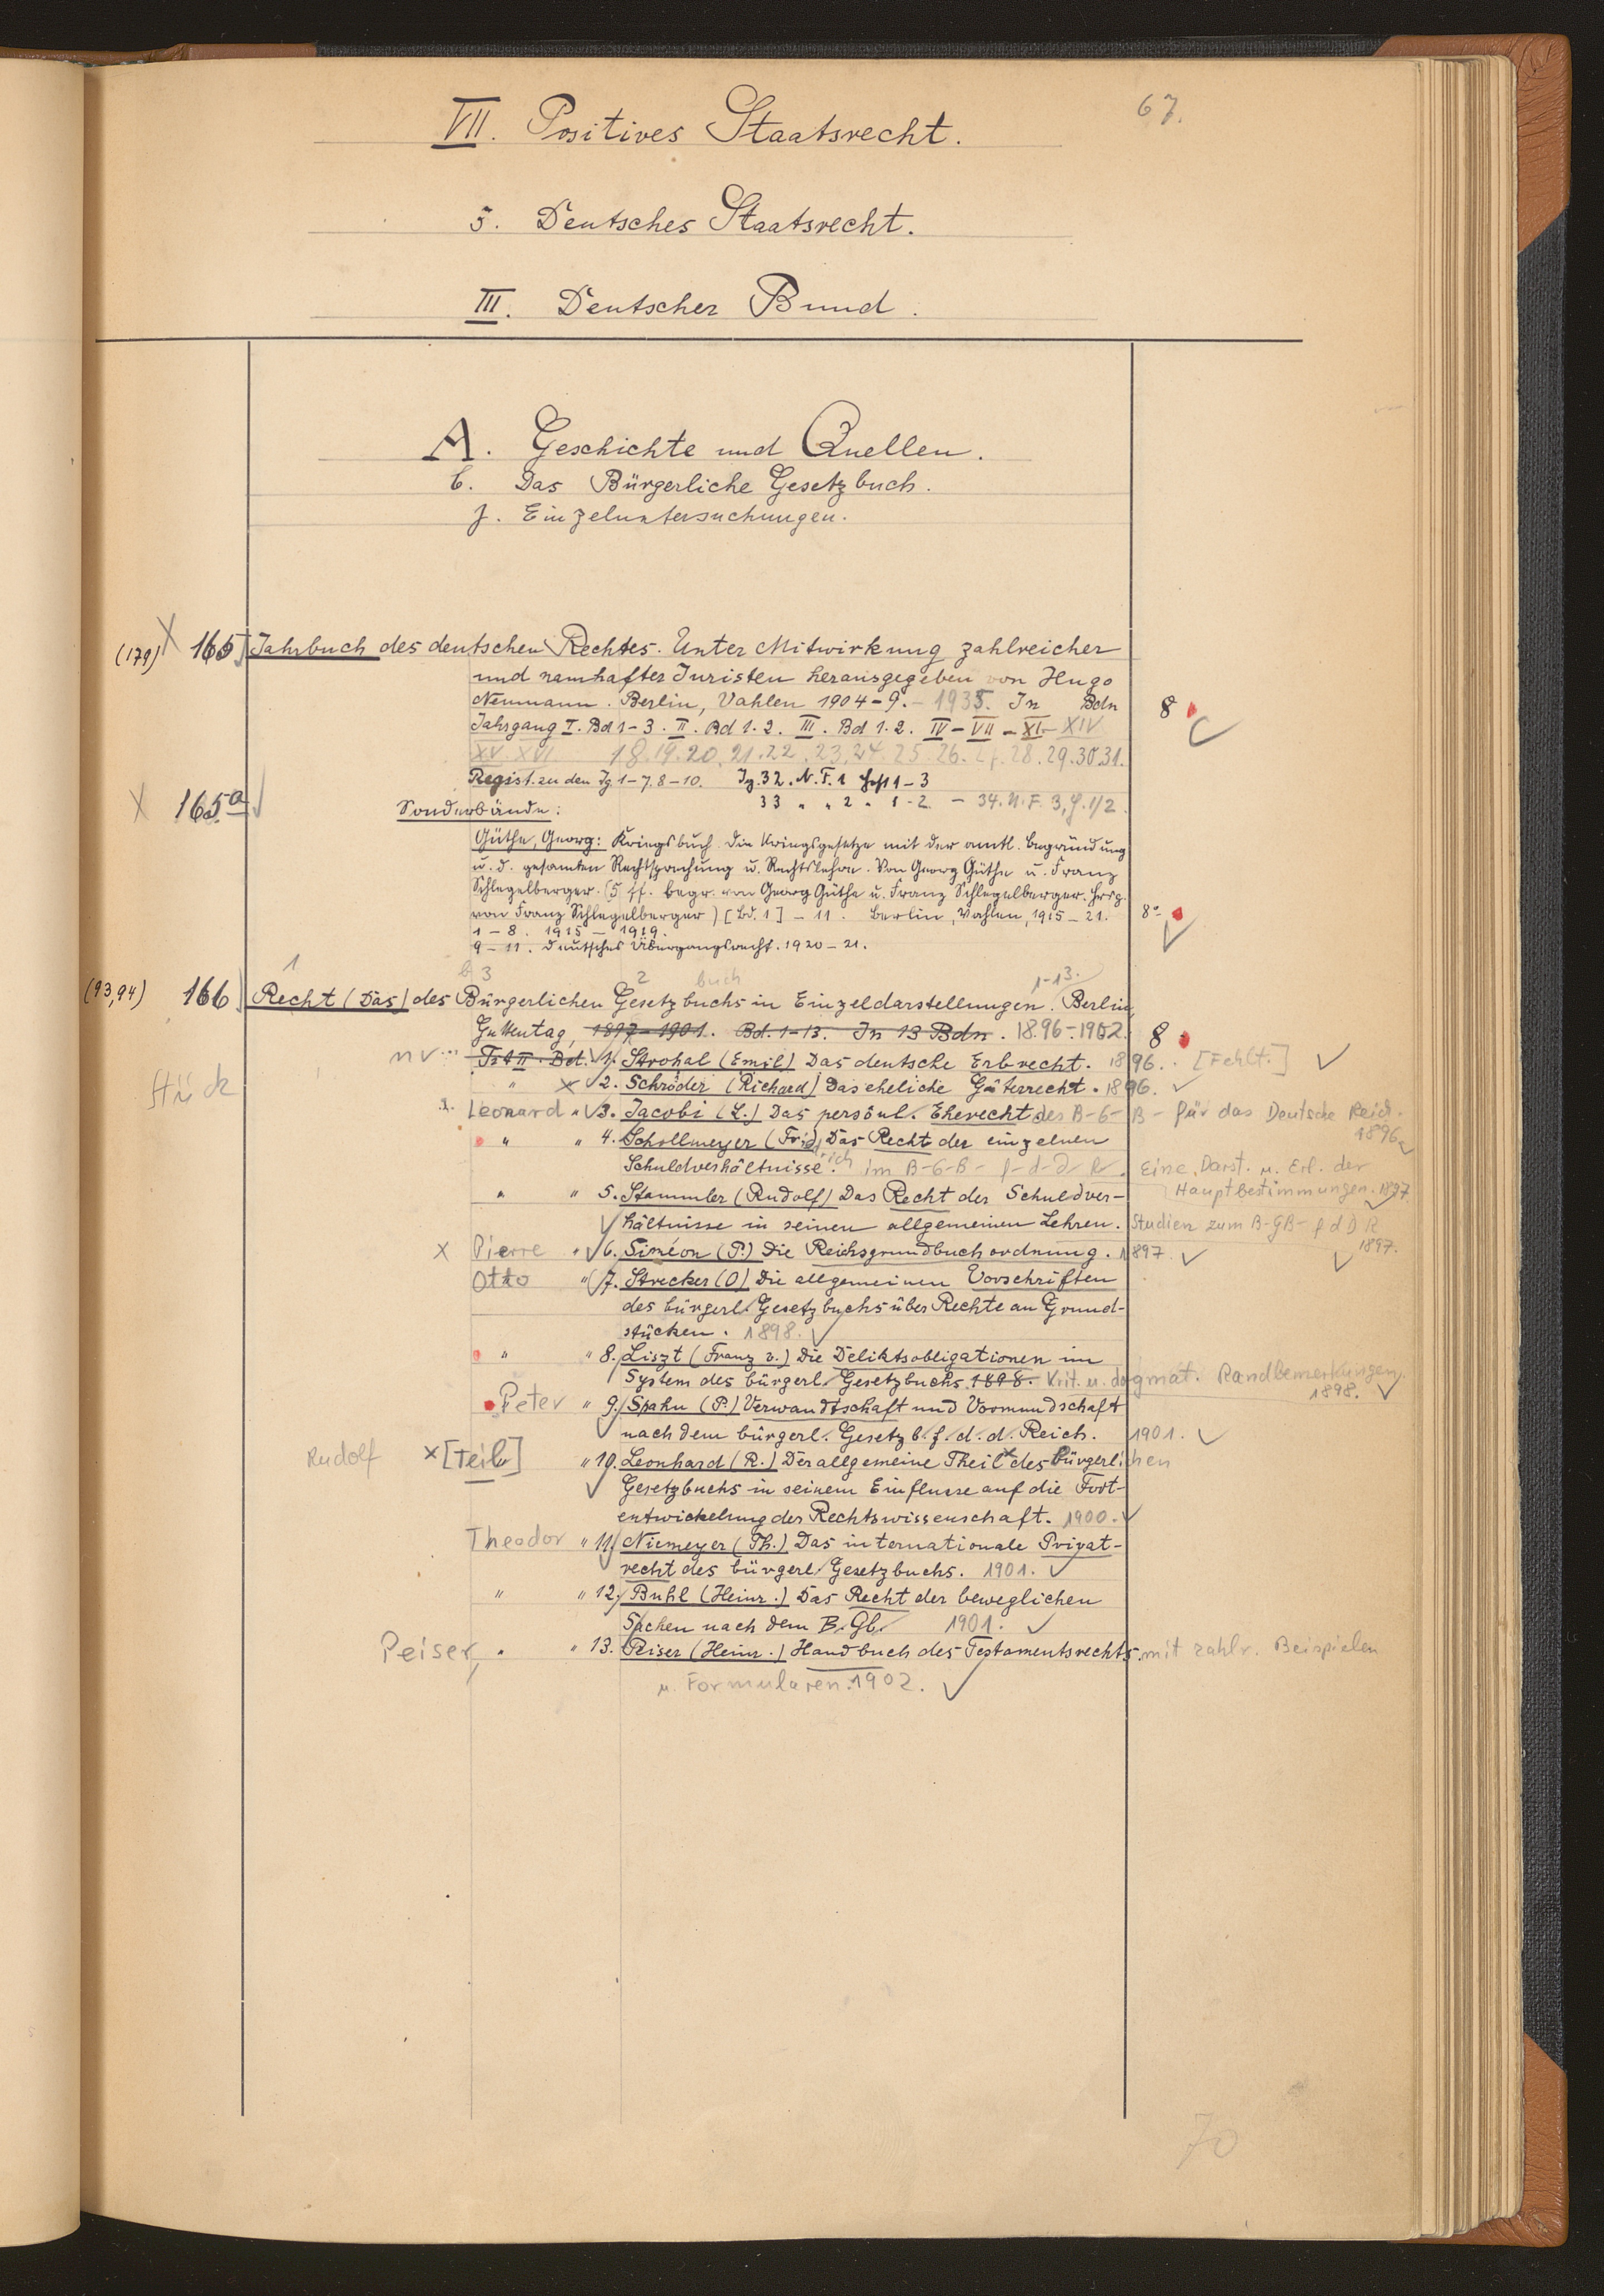 67.
VII. Positives Staatsrecht.
5. Deutsches Staatsrecht.
III. Deutscher Bund.
A. Geschichte und Quellen.
b. Das Bürgerliche Gesetzbuch.
f. Einzeluntersuchungen.
(179) X 165 Jahrbuch des deutschen Rechtes. Unter Mitwirkung zahlreicher
und namhafter Juristen herausgegeben von Hugo
Neumann. Berlin, Vahlen 1904-9. - 1935. In Bdn 8
Jahrgang I. Bd 1-3. II. Bd 1.2. III. Bd 1.2. IV-VII-XI-XIV
XV. XVI. 18.19.20.21.22.23.24.25.26.27.28.29.30.31.
Regist. zu den Jg. 1-7. 8-10. Jg. 32. N.F. 1 Heft 1-3
33 " " 2 " 1-2 - 34. N.F. 3, H. 1/2
X 165a Sonderbände:
Güthe, Georg: Kriegsbuch. Die Kriegsgesetze mit der amtl. Begründung
u. d. gesamten Rechtsprechung u. Rechtslehre. Von Georg Güthe u. Franz
Schlegelberger. (5 ff. begr. von Georg Güthe u. Franz Schlegelberger. Hrsg.
von Franz Schlegelberger) [Bd. 1] - 11. Berlin, Vahlen, 1915-21. 8°
1-8. 1915-1919.
9-11. Deutsches Übergangsrecht. 1920-21.
1 b 3 2 buch 1-13.
(93,94) 166 Recht (Das) des Bürgerlichen Gesetzbuchs in Einzeldarstellungen. Berlin,
Guttentag, 1897-1901. Bd. 1-13. In 13 Bdn. 1896-1902. 8
nv... Tit II. Bd. 1. Strohal (Emil) Das deutsche Erbrecht. 1896. [Fehlt.]
Stück " X 2. Schröder (Richard) Das eheliche Güterrecht. 1896.
Leonard " 3. Jacobi (L.) Das persönl. Eherecht des B-G-B- für das Deutsche Reich.
1896
" " 4. Schollmeyer (Frid.) Das Recht der einzelnen
Schuldverhältnisse. im B-G-B- f-d-D-R. Eine Darst. u. Erl. der
Hauptbestimmungen. 1897
" " 5. Stammler (Rudolf) Das Recht der Schuldver-
hältnisse in seinen allgemeinen Lehren. Studien zum B-GB- f d D R
1897.
X Pierre " 6. Siméon (P.) Die Reichsgrundbuchordnung. 1897.
Otto " 7. Strecker (O) Die allgemeinen Vorschriften
des bürgerl. Gesetzbuchs über Rechte an Grund-
stücken. 1898.
" " 8. Liszt (Franz v.) Die Deliktsobligationen im
System des bürgerl. Gesetzbuchs 1898. Krit. u. dogmat. Randbemerkungen.
1898.
Peter " 9. Spahn (P.) Verwandtschaft und Vormundschaft
nach dem bürgerl. Gesetzb. f. d. d. Reich. 1901.
Rudolf X [Teil] " 10. Leonhard (R.) Der allgemeine Theil des bürgerlichen
Gesetzbuchs in seinem Einflusse auf die Fort-
entwickelung der Rechtswissenschaft. 1900.
Theodor " 11. Niemeyer (Th.) Das internationale Privat-
recht des bürgerl. Gesetzbuchs. 1901.
" " 12. Buhl (Heinr.) Das Recht der beweglichen
Sachen nach dem B. Gb. 1901.
Peiser, " " 13. Peiser (Heinr.) Handbuch des Testamentsrechts. mit zahlr. Beispielen
u. Formularen. 1902.
70